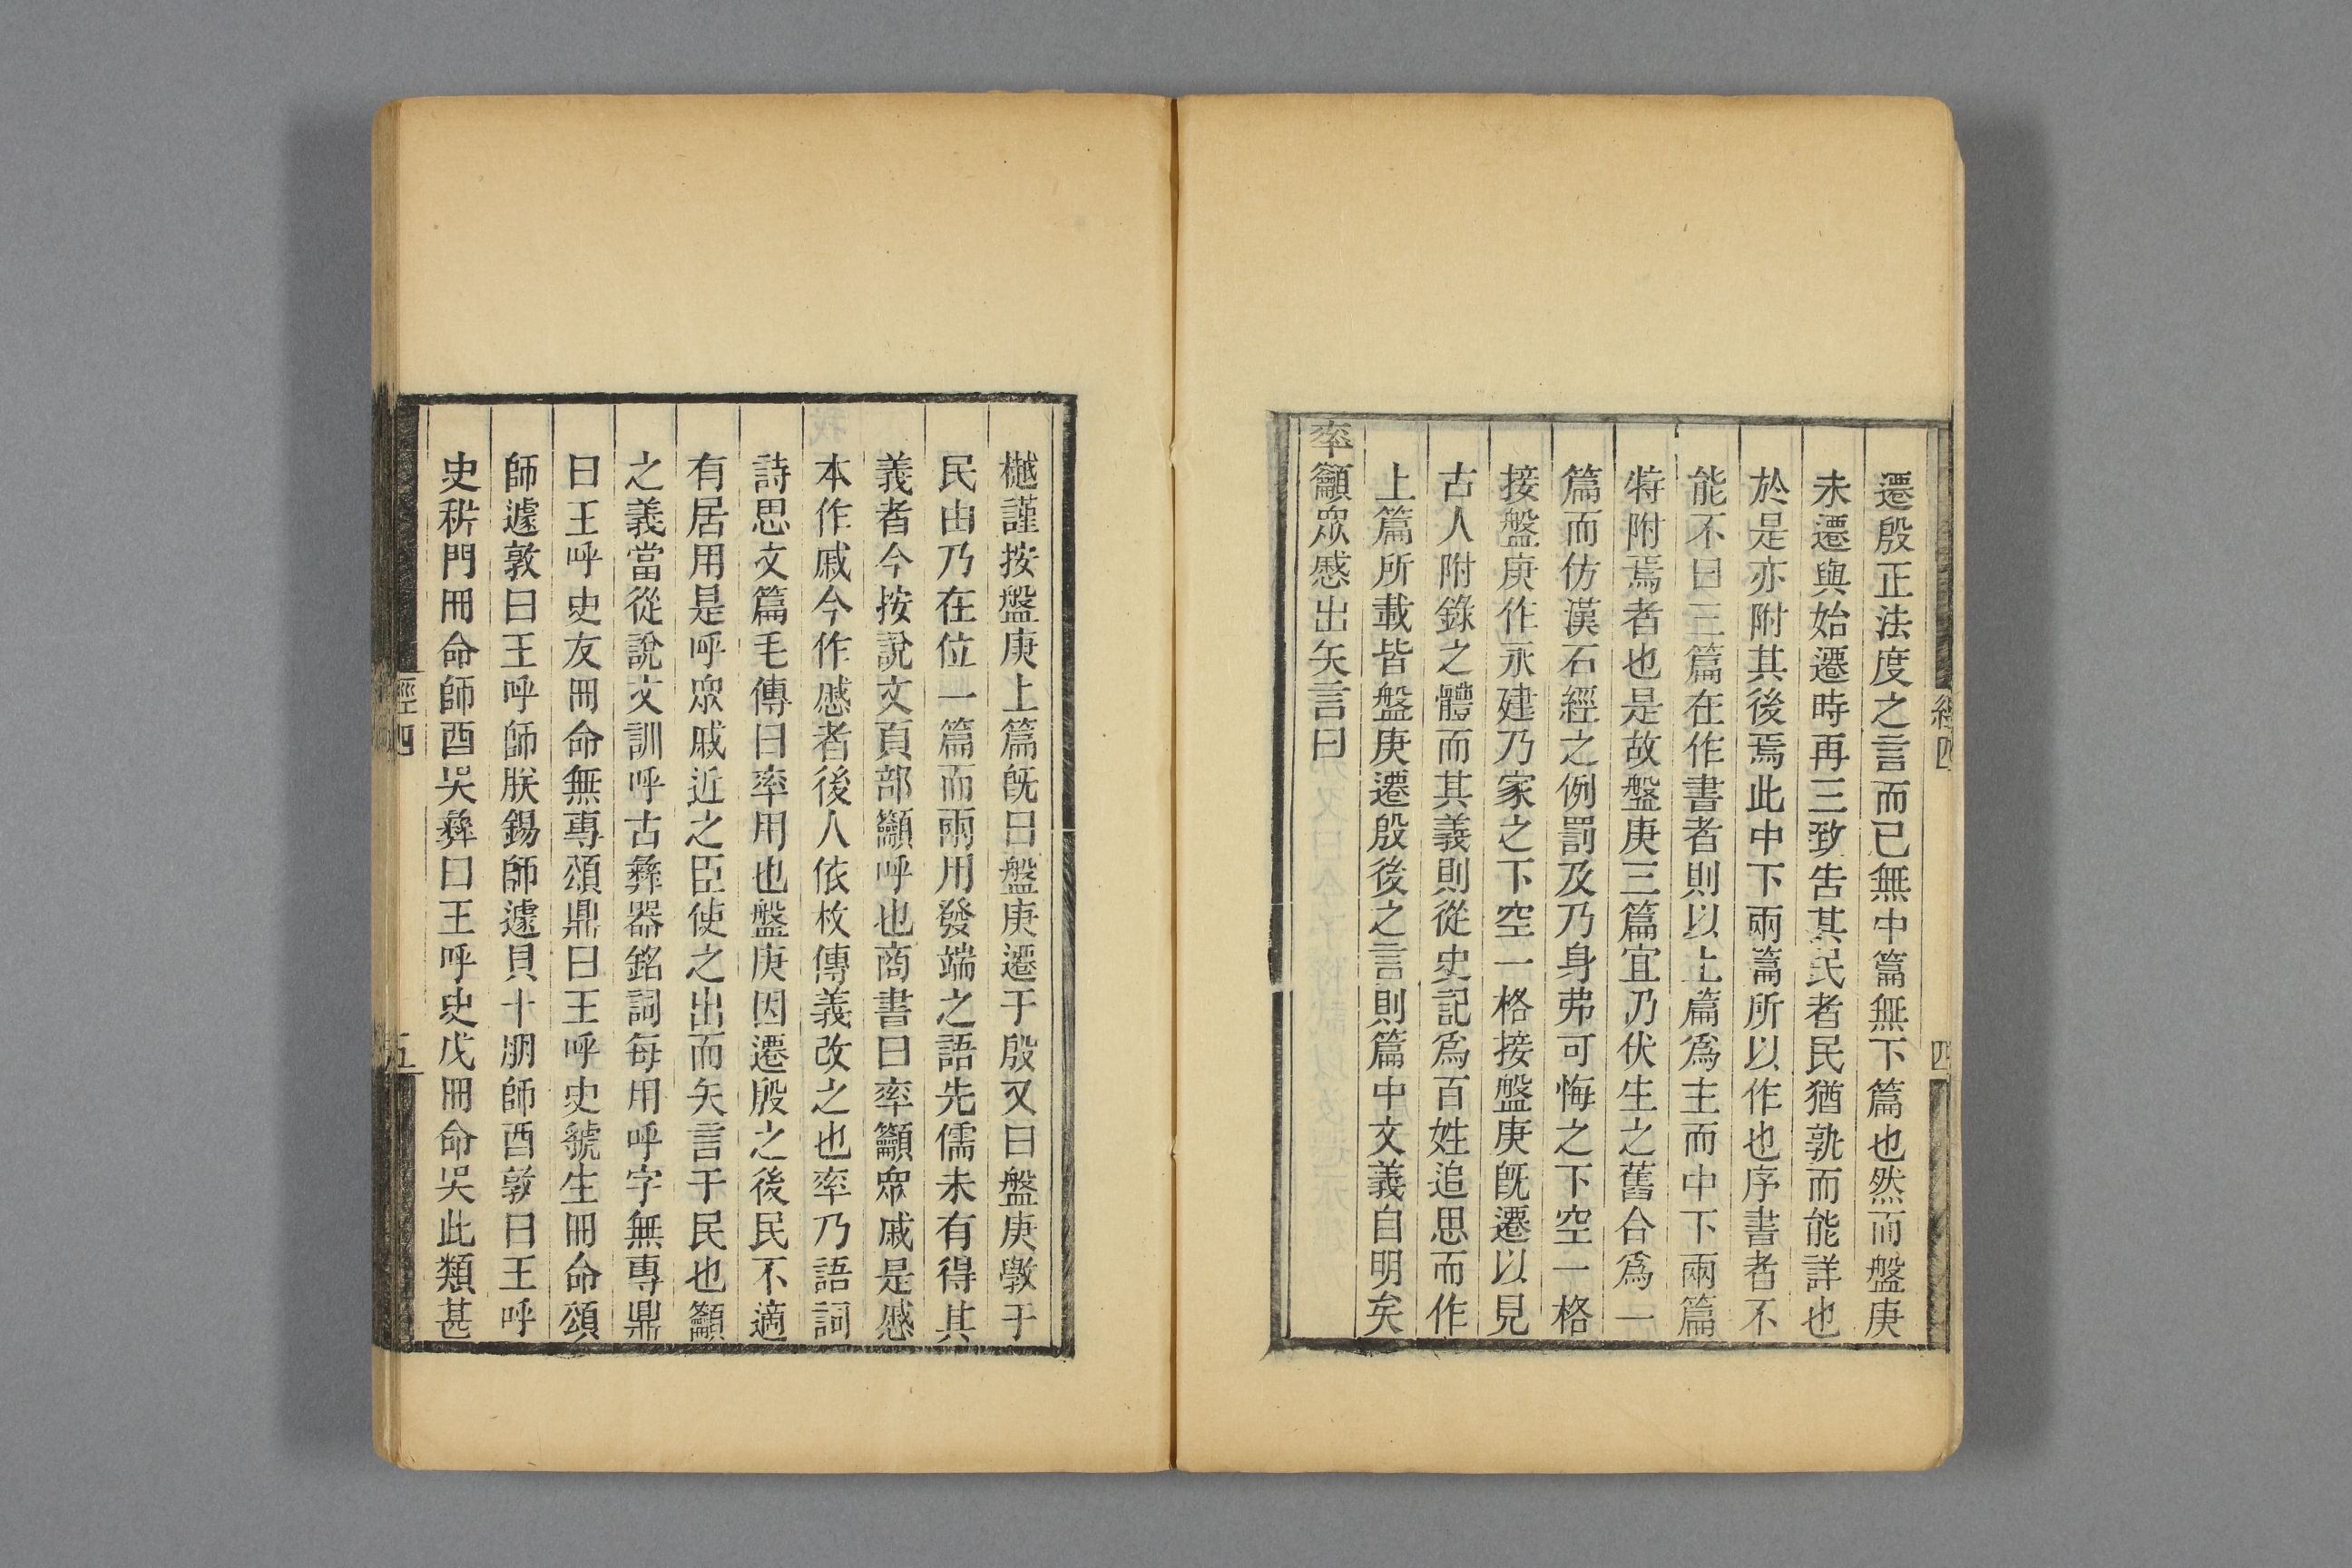 遷殷正法度之言而已無中篇無下篇也然而盤庚
未遷與始遷時再三致告其民者民猶孰而能詳也
於是亦附其後焉此中下兩篇所以作也序書者不
能不曰三篇在作書者則以上篇爲主而中下兩篇
特附焉者也是故盤庚三篇宜乃伏生之舊合爲一
篇而仿漢石經之例罰及乃身弗可悔之下空一格
接盤庚作永建乃家之下空一格接盤庚旣遷以見
古人附錄之體而其義則從史記爲百姓追思而作
上篇所載皆盤庚遷殷後之言則篇中文義自明矣
率籲眾慼出矢言曰
經四
四
樾謹按盤庚上篇旣曰盤庚遷于殷又曰盤庚斆于
民由乃在位一篇而兩用發端之語先儒未有得其
義者今按說文頁部籲呼也商書曰率籲眾戚是慼
本作戚今作慼者後人依枚傳義改之也率乃語詞
詩思文篇毛傳曰率用也盤庚因遷殷之後民不適
有居用是呼眾戚近之臣使之出而矢言于民也籲
之義當從說文訓呼古彝器銘詞每用呼字無專鼎
曰王呼史友冊命無專頌鼎曰王呼史虢生冊命頌
師遽敦曰王呼師朕錫師遽貝十朋師酉敦曰王呼
史㪿門冊命師酉吳彝曰王呼史戊冊命吳此類甚
經四
五